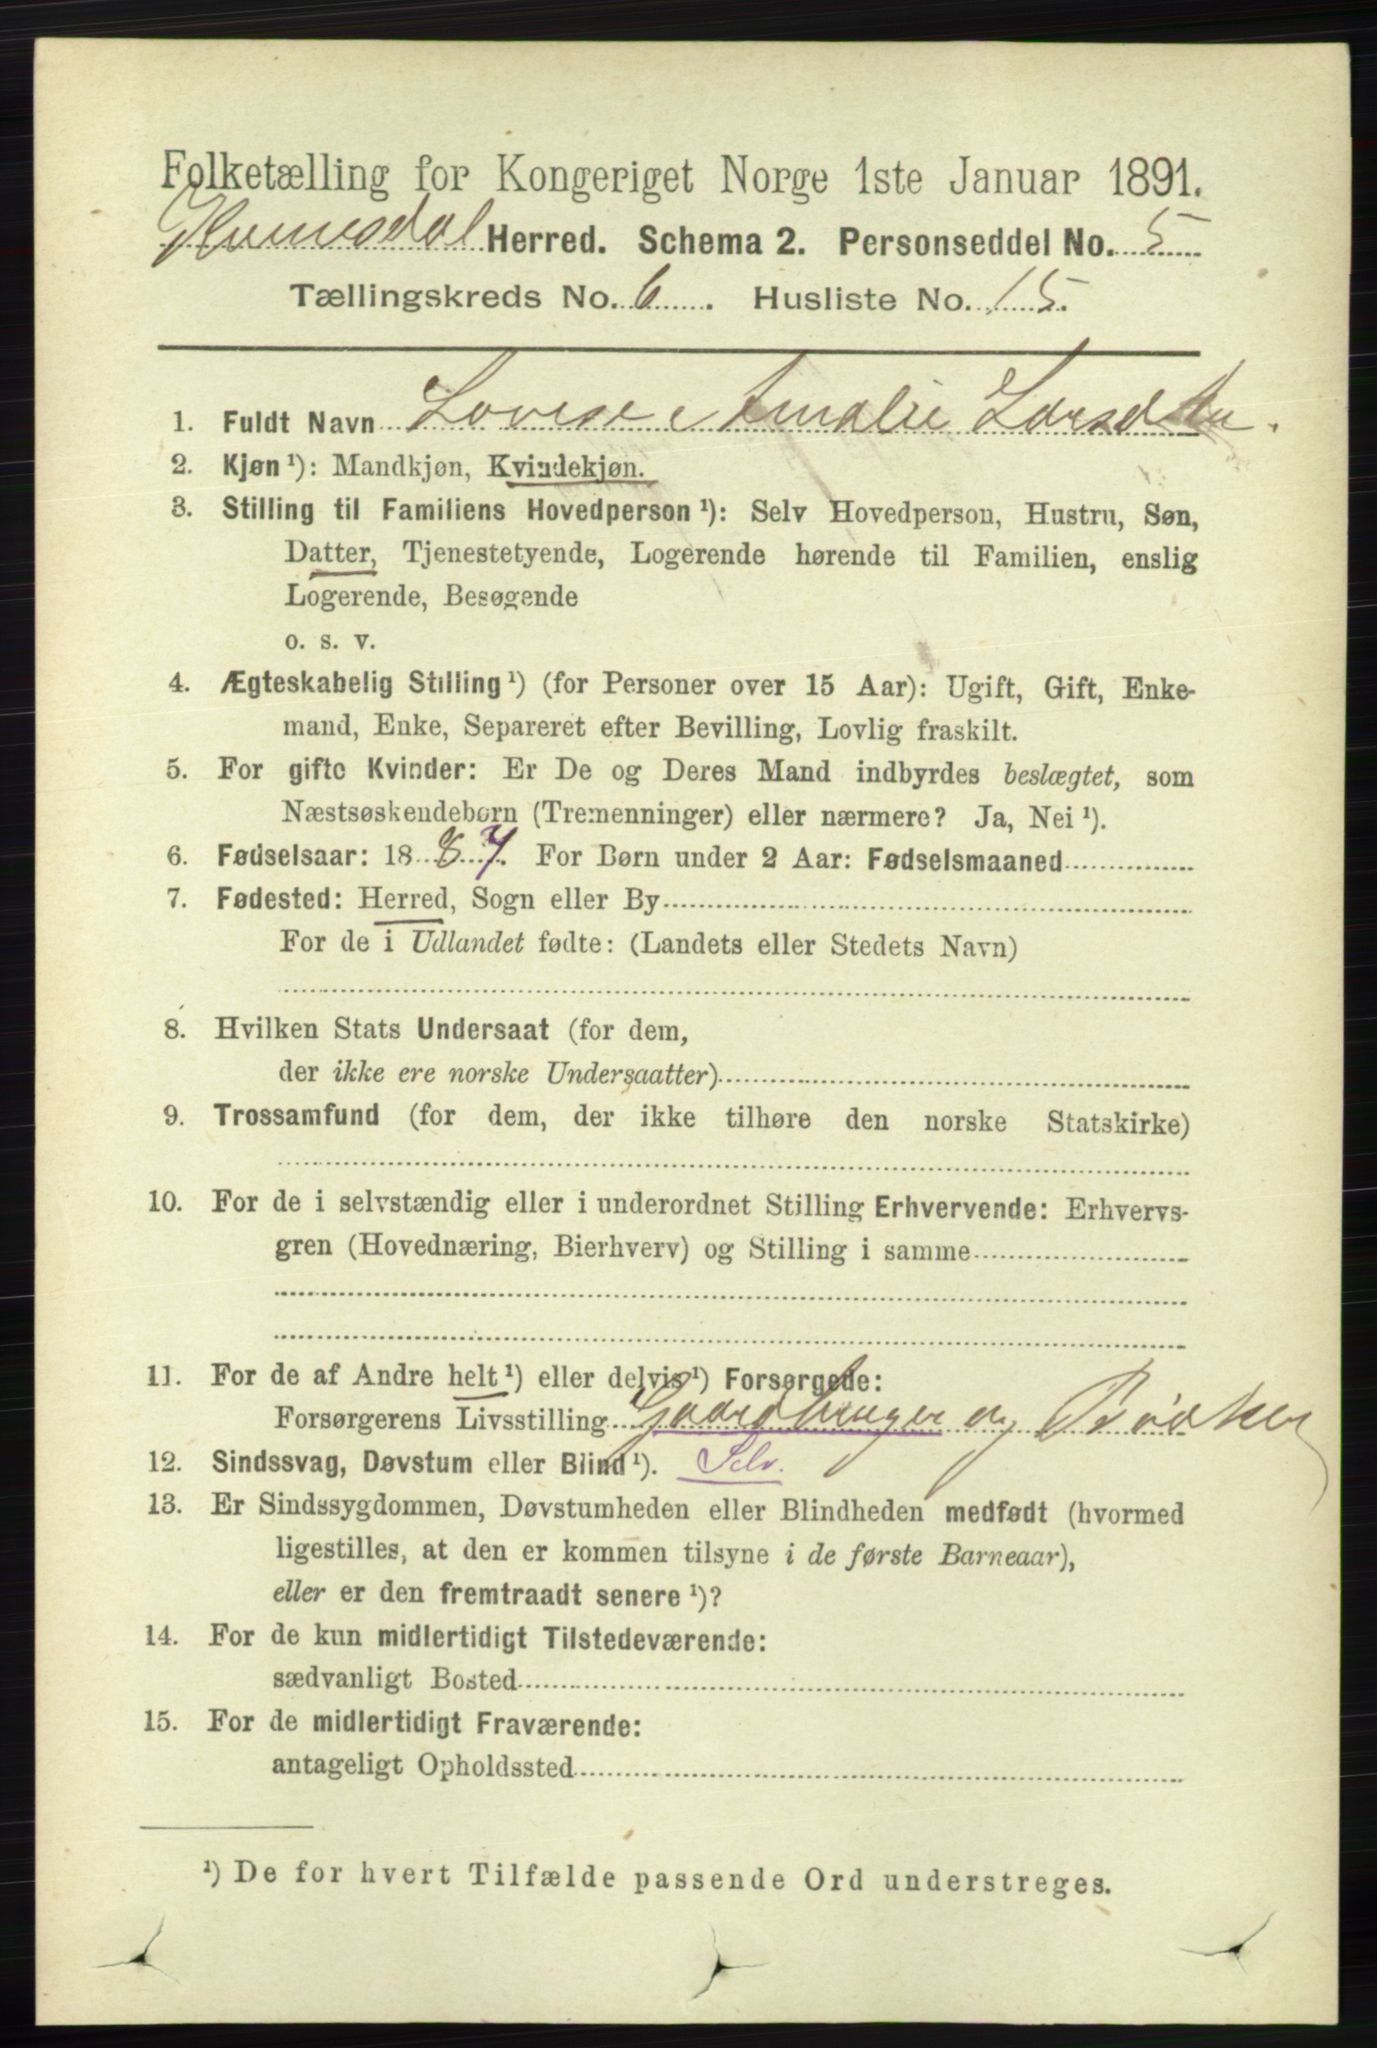 Folketælling for Kongeriget Norge 1ste Januar 1891.
Herred. Schema 2. Personseddel No. 5
Tællingskreds No. 6. Husliste No. 15.
1. Fuldt Navn Lovise Amalie Larsdtr.
2. Kjøn ¹): Mandkjøn, Kvindekjøn.
3. Stilling til Familiens Hovedperson ¹): Selv Hovedperson, Hustru, Søn,
Datter, Tjenestetyende, Logerende hørende til Familien, enslig
Logerende, Besøgende
o. s. v.
4. Ægteskabelig Stilling ¹) (for Personer over 15 Aar): Ugift, Gift, Enke-
mand, Enke, Separeret efter Bevilling, Lovlig fraskilt.
5. For gifte Kvinder: Er De og Deres Mand indbyrdes beslægtet, som
Næstsøskendebørn (Tremenninger) eller nærmere? Ja, Nei ¹).
6. Fødselsaar: 1887. For Børn under 2 Aar: Fødselsmaaned
7. Fødested: Herred, Sogn eller By
For de i Udlandet fødte: (Landets eller Stedets Navn)
8. Hvilken Stats Undersaat (for dem,
der ikke ere norske Undersaatter)
9. Trossamfund (for dem, der ikke tilhøre den norske Statskirke)
10. For de i selvstændig eller i underordnet Stilling Erhvervende: Erhvervs-
gren (Hovednæring, Bierhverv) og Stilling i samme
11. For de af Andre helt ¹) eller delvis ¹) Forsørgede:
Forsørgerens Livsstilling Gaardbruger og Bødker
12. Sindssvag, Døvstum eller Blind ¹). Selv.
13. Er Sindssygdommen, Døvstumheden eller Blindheden medfødt (hvormed
ligestilles, at den er kommen tilsyne i de første Barneaar),
eller er den fremtraadt senere ¹)?
14. For de kun midlertidigt Tilstedeværende:
sædvanligt Bosted
15. For de midlertidigt Fraværende:
antageligt Opholdssted
¹) De for hvert Tilfælde passende Ord understreges.